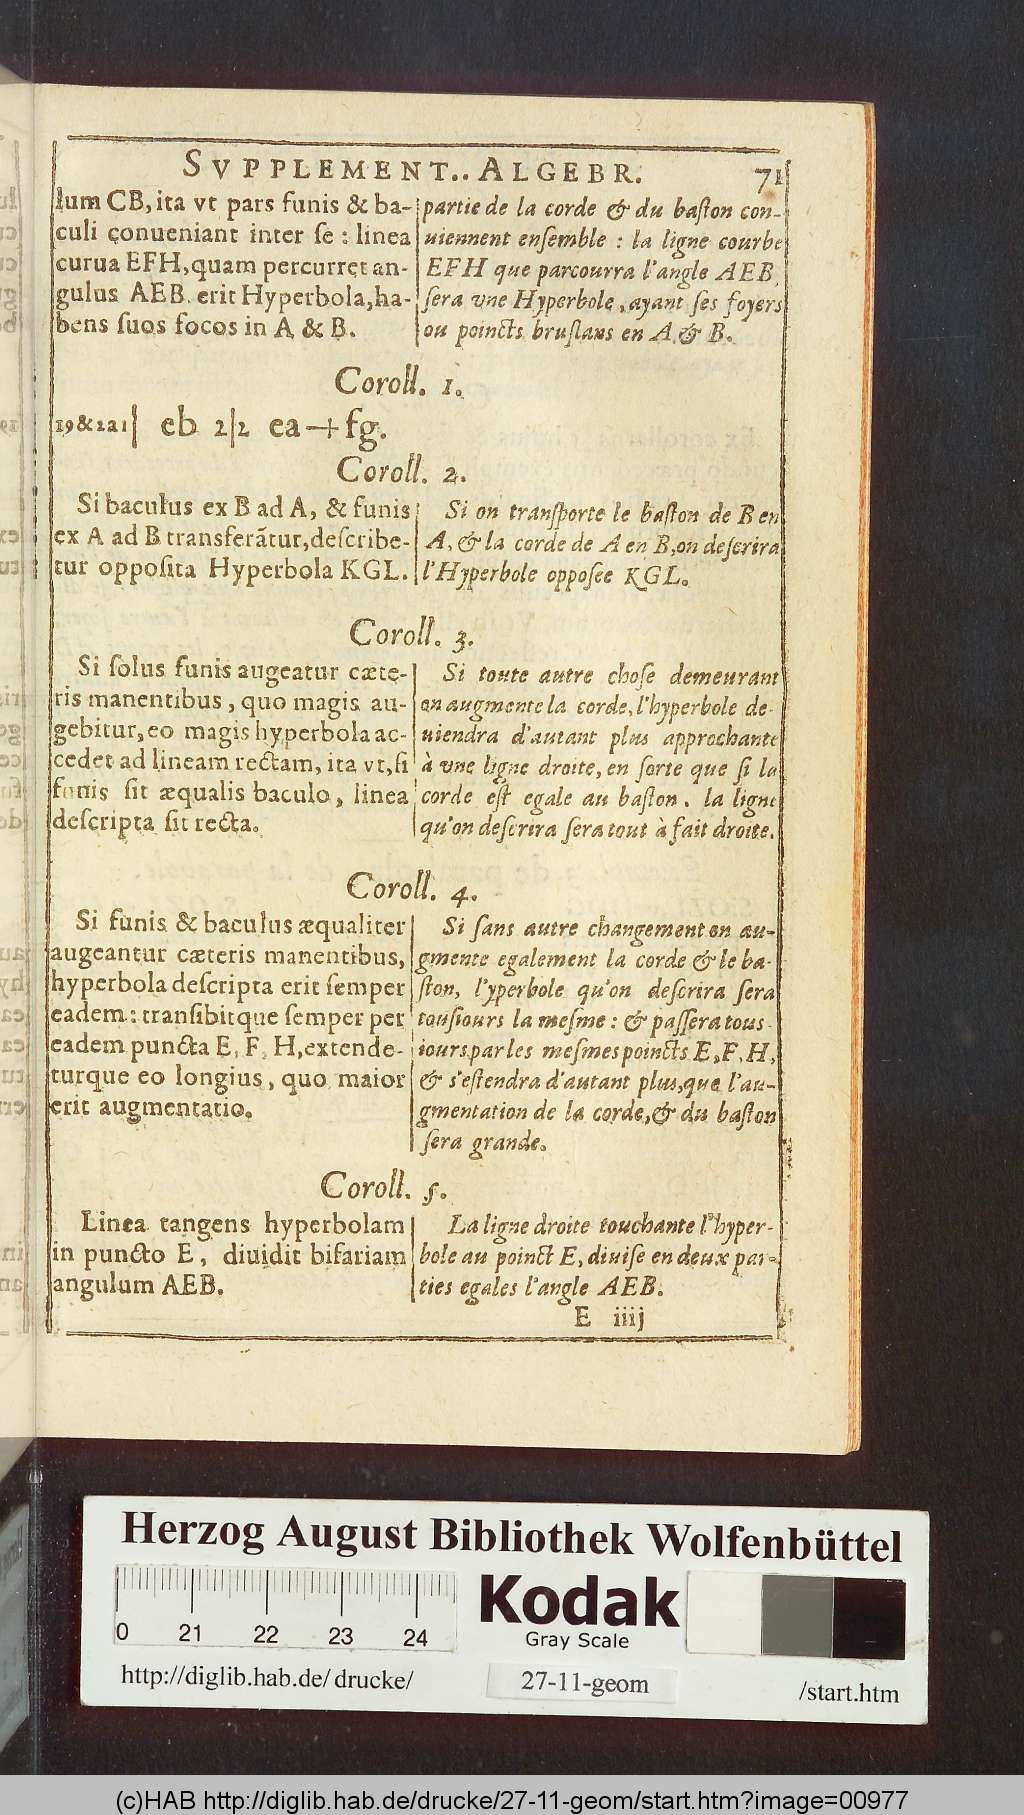 SVPPLEMENT.. ALGEBR. 71
lum CB, ita vt pars funis & ba-
culi conueniant inter ſe : linea
curua EFH, quam percurret an-
gulus AEB. erit Hyperbola, ha-
bens ſuos focos in A & B.
partie de la corde & du baſton con-
uiennent enſemble : la ligne courbe
EFH que parcourra l'angle AEB,
ſera vne Hyperbole, ayant ſes foyers
ou poincts bruſlans en A & B.
Coroll. 1.
19 & 2 a 1| eb 2|2 ea + fg.
Coroll. 2.
Si baculus ex B ad A, & funis
ex A ad B transferãtur, deſcribe-
tur oppoſita Hyperbola KGL.
Si on tranſporte le baſton de B en
A, & la corde de A en B, on deſcrira
l'Hyperbole oppoſee KGL.
Coroll. 3.
Si ſolus funis augeatur cæte-
ris manentibus, quo magis au-
gebitur, eo magis hyperbola ac-
cedet ad lineam rectam, ita vt, ſi
funis ſit æqualis baculo, linea
deſcripta ſit recta.
Si toute autre choſe demeurant
on augmente la corde, l'hyperbole de-
uiendra d'autant plus approchante
à vne ligne droite, en ſorte que ſi la
corde eſt egale au baſton. la ligne
qu'on deſcrira ſera tout à fait droite.
Coroll. 4.
Si funis & baculus æqualiter
augeantur cæteris manentibus,
hyperbola deſcripta erit ſemper
eadem : tranſibitque ſemper per
eadem puncta E, F, H, extende-
turque eo longius, quo maior
erit augmentatio.
Si ſans autre changement on au-
gmente egalement la corde & le ba-
ſton, l'yperbole qu'on deſcrira ſera
touſiours la meſme : & paſſera tous-
iours par les meſmes poincts E, F, H,
& s'eſtendra d'autant plus, que l'au-
gmentation de la corde, & du baſton
ſera grande.
Coroll. 5.
Linea tangens hyperbolam
in puncto E, diuidit bifariam
angulum AEB.
La ligne droite touchante l'hyper-
bole au poinct E, diuiſe en deux par-
ties egales l'angle AEB.
E iiij
Herzog August Bibliothek Wolfenbüttel
0 21 22 23 24
Kodak
Gray Scale
http://diglib.hab.de/drucke/ 27-11-geom /start.htm
(c)HAB http://diglib.hab.de/drucke/27-11-geom/start.htm?image=00977